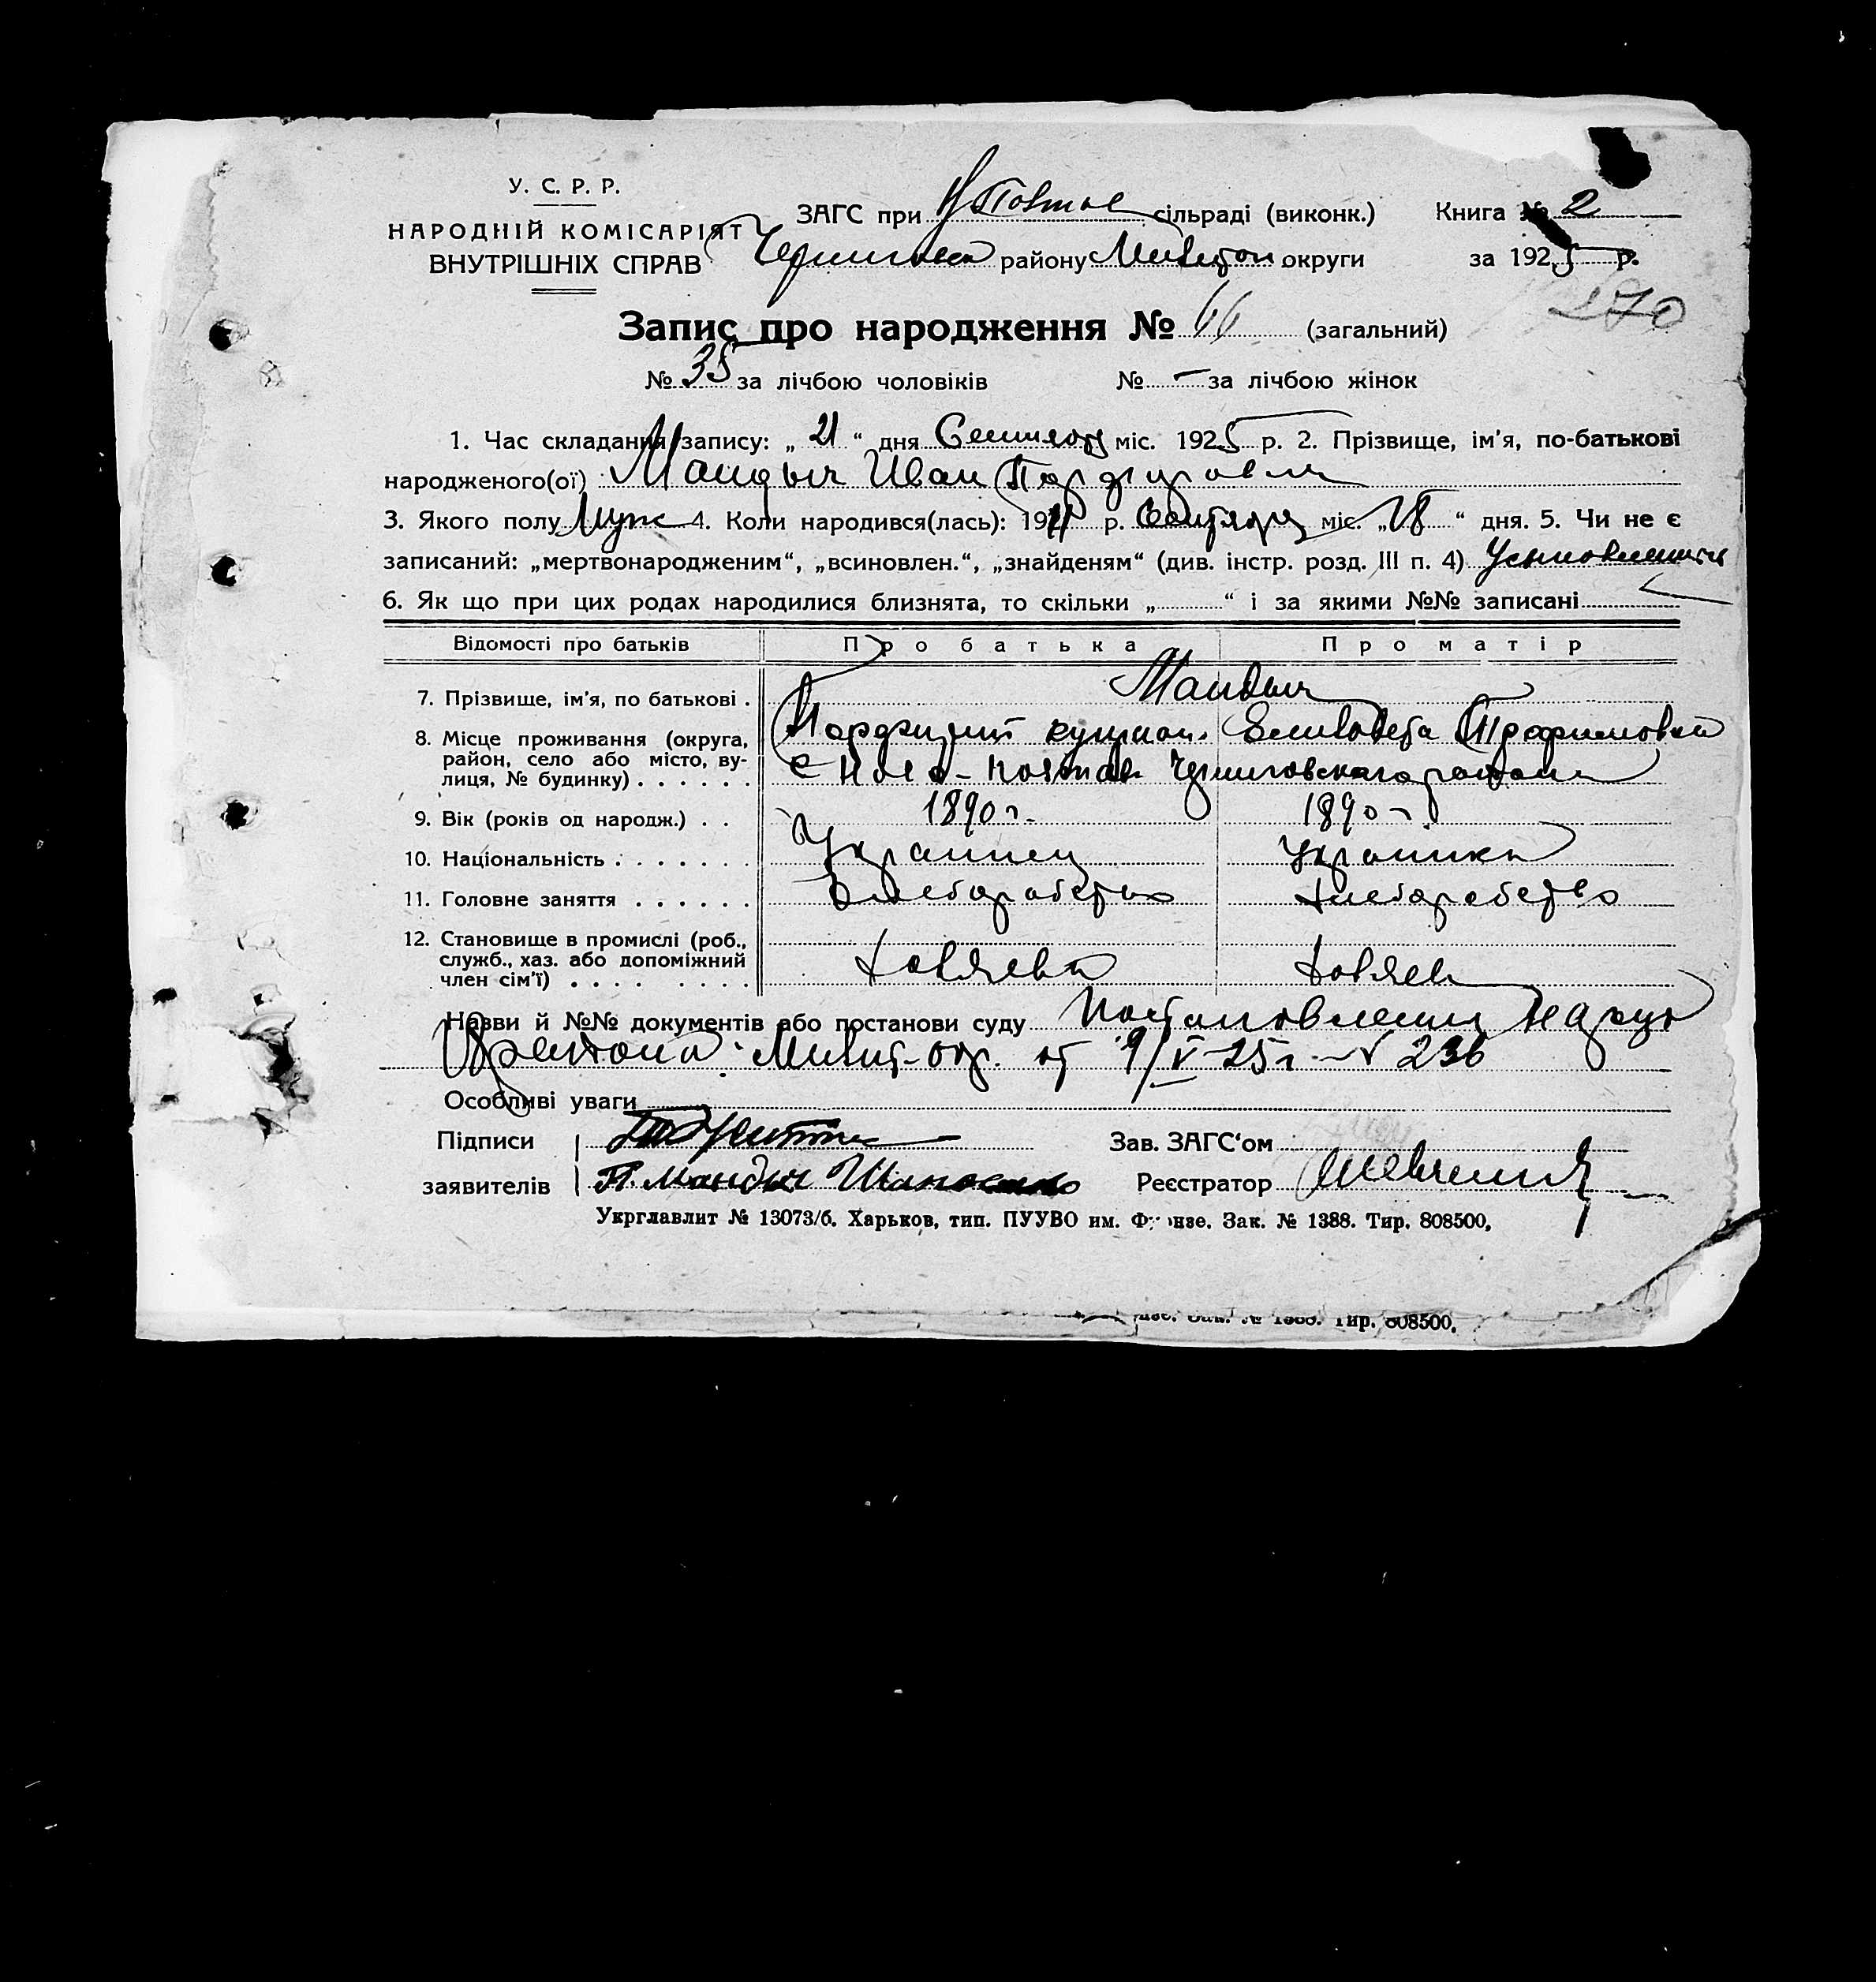 У. С. Р. Р.
НАРОДНІЙ КОМІСАРІЯТ
ВНУТРІШНІХ СПРАВ
ЗАГС при Н Полтав сільраді (виконк.)
района Мелитоп округи
Книга № 2
за 1925 р.
270
Запис про народження № 66 (загальний)
№ 35 за лічбою чоловіків № - за лічбою жінок
1. Час складання запису: „ 21 “ дня Сентября міс. 1925 р. 2. Прізвище, ім'я, по-батькові
народженого(ої) Мандыч Иван Порфирович
3. Якого полу Муж 4. Коли народився(лась): 19 р. Сентября міс. „ 18 “ дня. 5. Чи не є
записаний: „мертвонародженим“, „всиновлен.“, „знайденям“ (див. інстр. розд. III п. 4)
6. Як що при цих родах народилися близнята, то скільки „ “ і за якими №№ записані
Відомості про батьків Про батька Про матір
7. Прізвище, ім'я, по батькові . Мандыч
Порфирий Елизавета Трофимовна
8. Місце проживання (округа, район, село або місто, вулиця, № будинку) . . . . . . с Ново-Полтав Черниговского района
9. Вік (років од народж.) . . 1890 г. 1890 г
10. Національність . . . . . . . Украинец Украинка
11. Головне заняття . . . . . . Хлеборобство Хлеборобство
12. Становище в промислі (роб., служб., хаз. або допоміжний член сім'ї) . . . . . . . . Хозяева Хозяев
Назви й №№ документів або постанови суду Постановления Нарсуд
района Мелит-окр. от 9/V-25 г. № 236
Особливі уваги
Підписи
заявителів П. Мандыч
Зав. ЗАГС'ом
Реєстратор Шевченко
Укрглавлит № 13073/б. Харьков, тип. ПУУВО им. Фрунзе. Зак. № 1388. Тир. 808500.
Зак. № 1388. Тир. 808500.